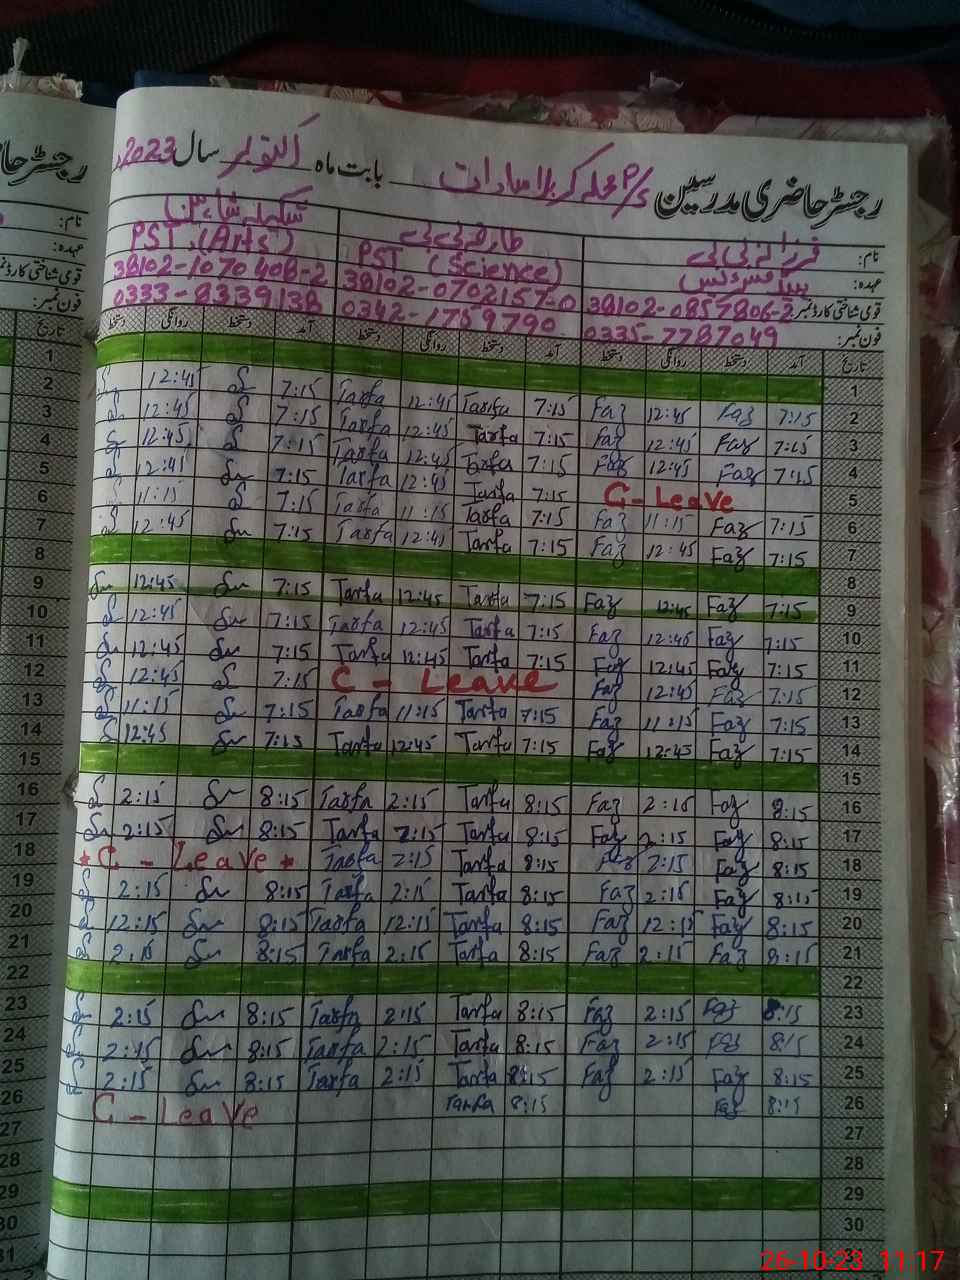 رجسٹر حاضری مدرسین P/S محلہ کربلا سادات بابت ماہ اکتوبر سال 2023ء
نام: فرزانہ بی بی طارفہ بی بی شکیلہ شاہین
عہدہ: PST (Science) PST (Arts)
قومی شناختی کارڈ نمبر: 38102-0857806-2 38102-0702157-0 38102-1070408-2
فون نمبر: 0335-7787049 0342-1759790 0333-8339138
تاریخ آمد دستخط روانگی دستخط آمد دستخط روانگی دستخط آمد دستخط روانگی دستخط
1
2 7:15 Faz 12:45 Faz 7:15 Tarfa 12:45 Tarfa 7:15 S 12:45 S
3 7:15 Faz 12:45 Faz 7:15 Tarfa 12:45 Tarfa 7:15 S 12:45 S
4 7:15 Faz 12:45 Faz 7:15 Tarfa 12:45 Tarfa 7:15 S 12:45 S
5 C-Leave 7:15 Tarfa 12:45 Tarfa 7:15 12:45 S
6 7:15 Faz 11:15 Faz 7:15 Tarfa 11:15 Tarfa 7:15 S 11:15 S
7 7:15 Faz 12:45 Faz 7:15 Tarfa 12:45 Tarfa 7:15 12:45 S
8
9 7:15 Faz 12:45 Faz 7:15 Tarfa 12:45 Tarfa 7:15 12:45
10 7:15 Faz 12:45 Faz 7:15 Tarfa 12:45 Tarfa 7:15 12:45 S
11 7:15 Faz 12:45 Faz 7:15 Tarfa 12:45 Tarfa 7:15 12:45
12 7:15 Faz 12:45 Faz C - Leave 7:15 S 12:45 S
13 7:15 Faz 11:15 Faz 7:15 Tarfa 11:15 Tarfa 7:15 11:15 S
14 7:15 Faz 12:45 Faz 7:15 Tarfa 12:45 Tarfa 7:15 12:45 S
15
16 8:15 Faz 2:15 Faz 8:15 Tarfa 2:15 Tarfa 8:15 2:15 S
17 8:15 Faz 2:15 Faz 8:15 Tarfa 2:15 Tarfa 8:15 2:15
18 8:15 Faz 2:15 Faz 8:15 Tarfa 2:15 Tarfa * C - Leave *
19 8:15 Faz 2:15 Faz 8:15 Tarfa 2:15 Tarfa 8:15 2:15 S
20 8:15 Faz 12:15 Faz 8:15 Tarfa 12:15 Tarfa 8:15 12:15
21 8:15 Faz 2:15 Faz 8:15 Tarfa 2:15 Tarfa 8:15 2:15 S
22
23 8:15 Faz 2:15 Faz 8:15 Tarfa 2:15 Tarfa 8:15 2:15
24 8:15 Faz 2:15 Faz 8:15 Tarfa 2:15 Tarfa 8:15 2:15
25 8:15 Faz 2:15 Faz 8:15 Tarfa 2:15 Tarfa 8:15 2:15
26 8:15 Faz 8:15 Tarfa C - Leave
27
28
29
30
26-10-23 11:17